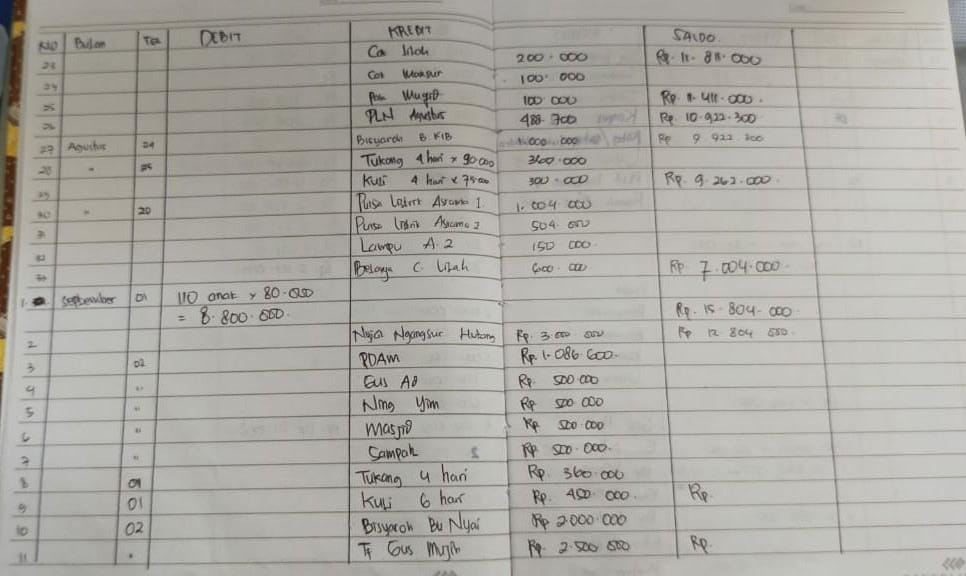 NO Bulan Tgl DEBIT KREDIT SALDO
23 200.000 Rp. 11.811.000
24 100.000
25 100.000 Rp. 11.411.000.
26 PLN Agustus 488.700 Rp. 10.922.300
27 Agustus 24 Bisyaroh B. KIB 1.000.000 Rp 9.922.300
28 " 25 Tukang 4 hari x 90.000 360.000
29 Kuli 4 hari x 75.000 300.000 Rp. 9.262.000.
30 " 20 Pulsa Listrik Asrama 1. 1.004.000
31 Pulsa Listrik Asrama 2 504.000
32 Lampu A. 2 150 000.
33 Belanja C. 600.000 Rp. 7.004.000.
1. September 01 110 anak x 80.000
= 8.800.000. Rp. 15.804.000.
2 Ngangsur Hutang Rp. 3.000.000 Rp 12.804.000.
3 02 PDAM Rp. 1.086.600.
4 " Gus Rp. 500.000
5 " Ning Rp 500.000
6 " Masjid Rp 500.000
7 " Sampah Rp 500.000.
8 01 Tukang 4 hari Rp. 360.000
9 01 Kuli 6 hari Rp. 450.000. Rp.
10 02 Bisyaroh Bu Nyai Rp 2.000.000
11 " Tf Gus Mujib Rp. 2.500.000 Rp.